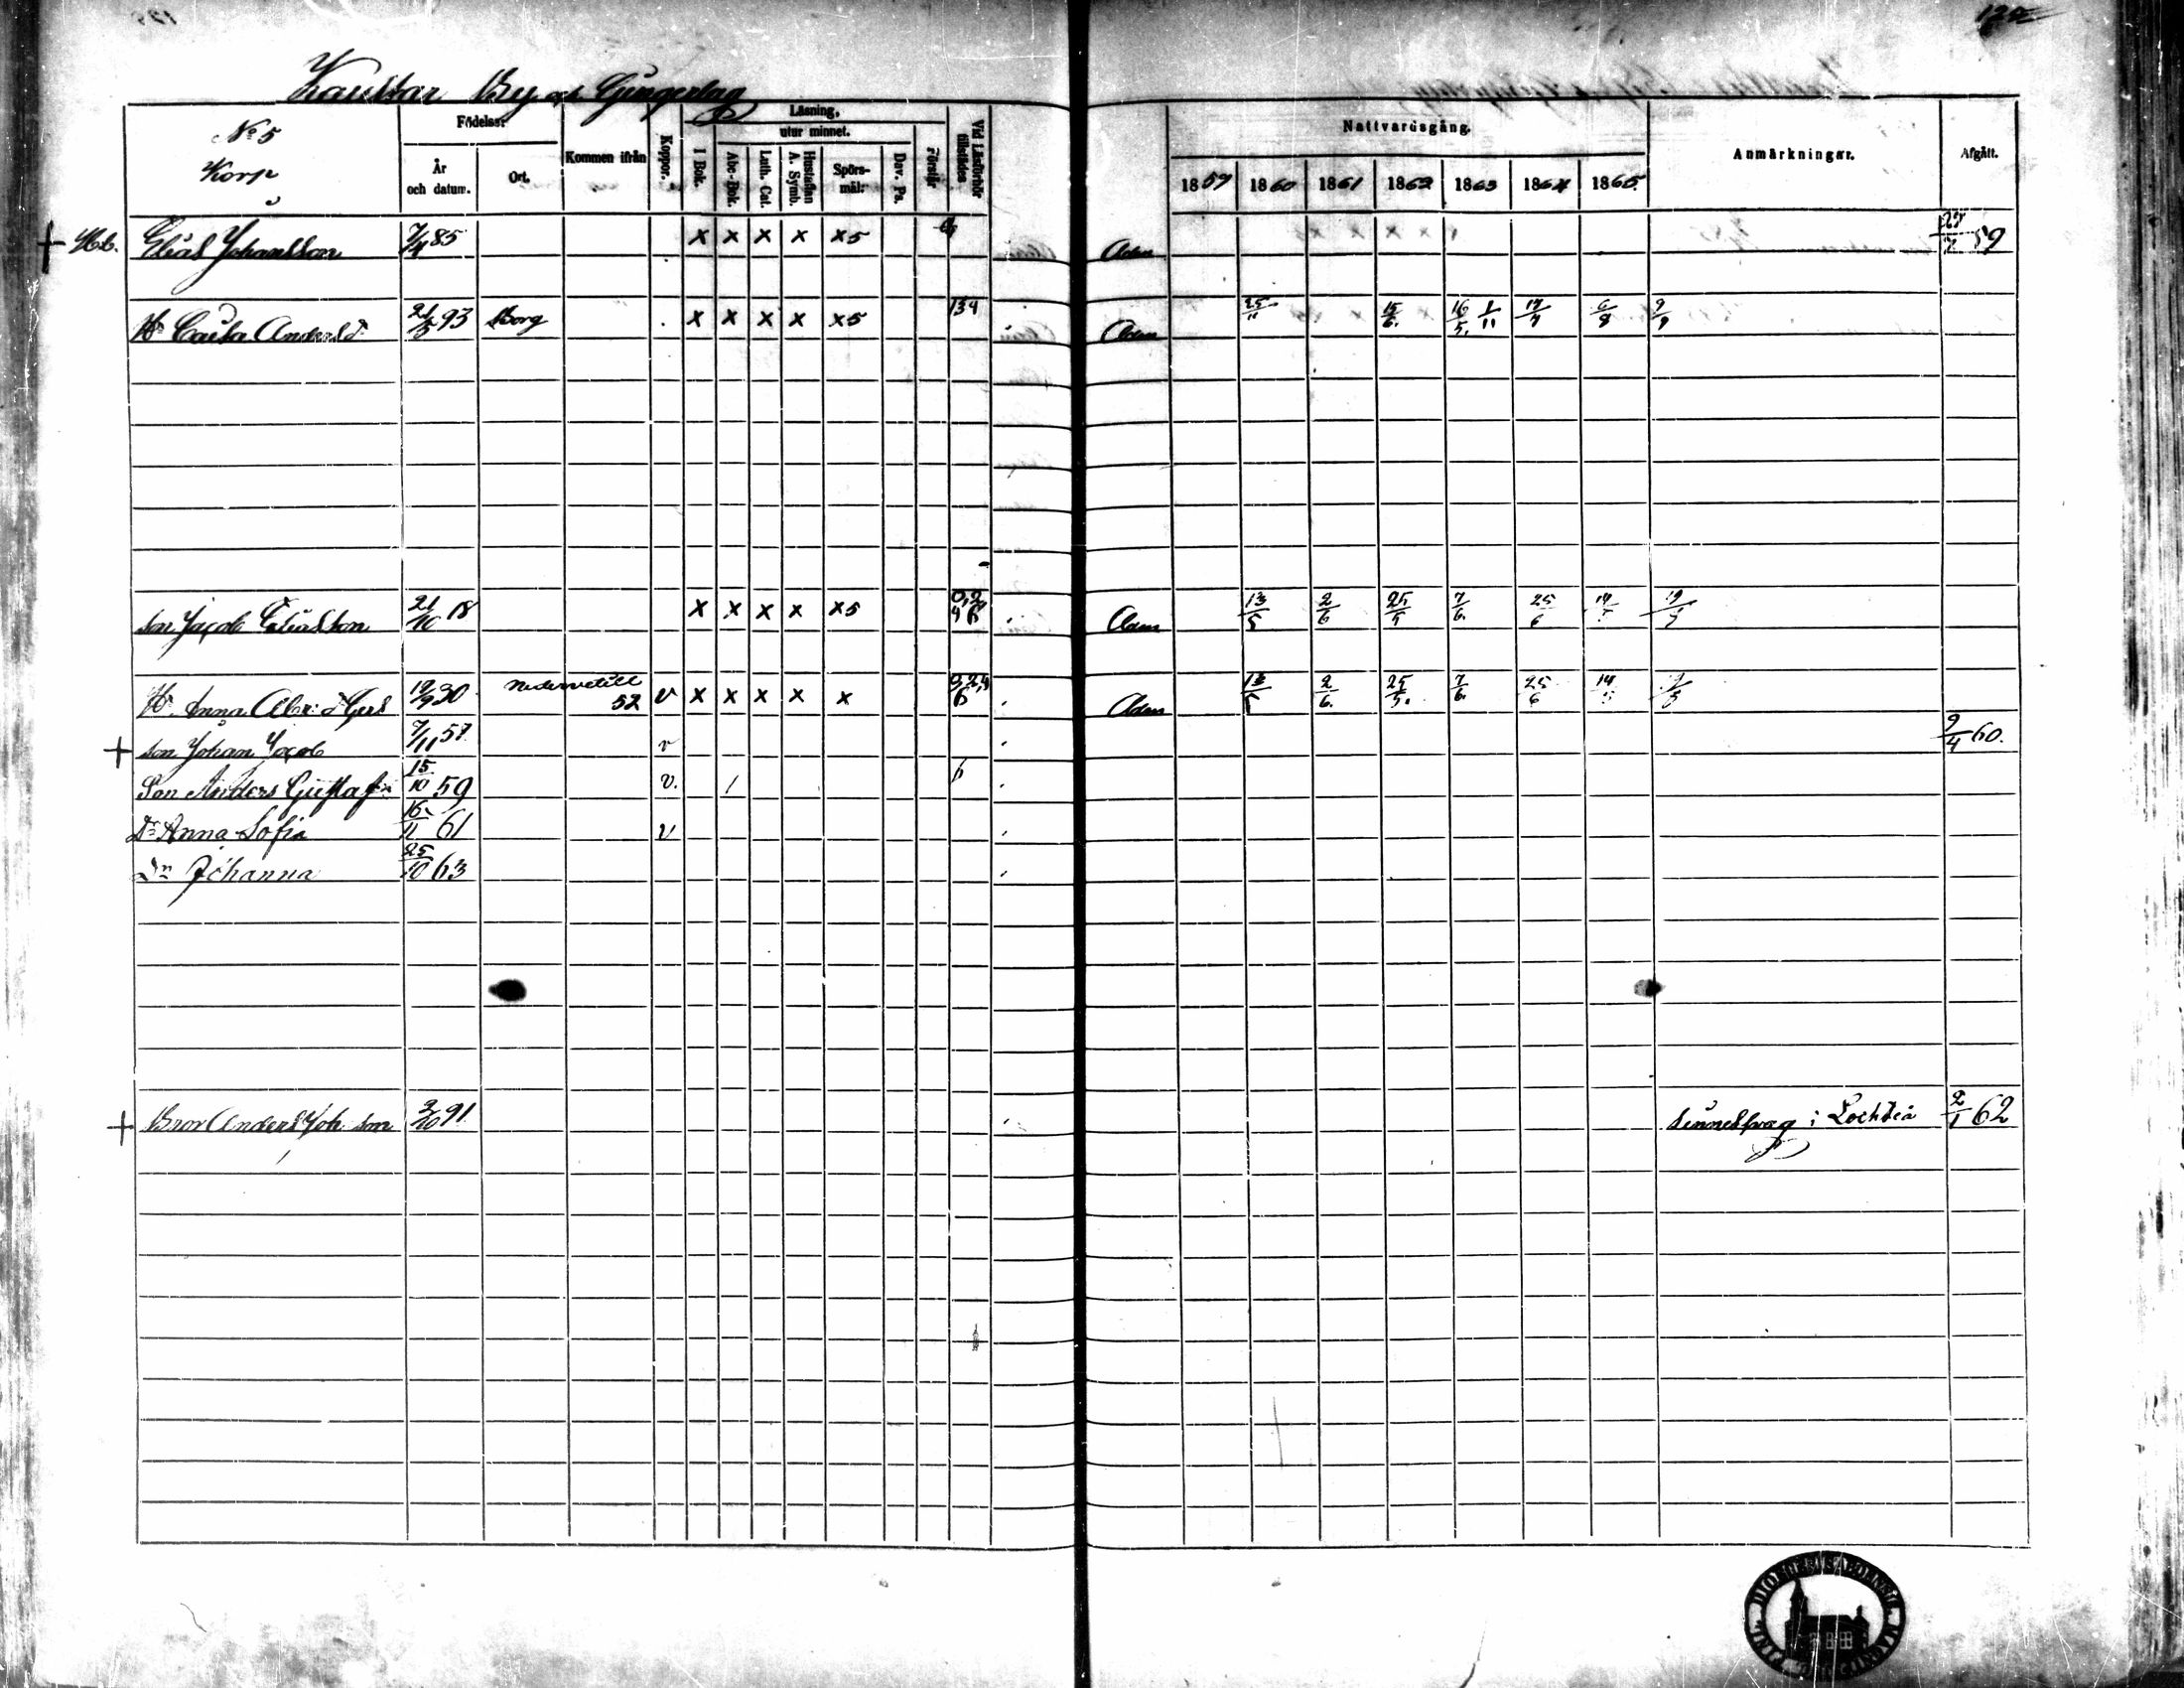 Kaustar By och Gjengerlag
Läsning.
Födelse:
utur minnet.
Nattvardsgång.
Anmärkningar.
Afgått.
No 5
Korp
År och datum.
Ort.
Kommen ifrån
Koppor.
I Bok.
Abc-Bok.
Luth. Cat.
Hustaflan A. Symb.
Spörs-mål:
Dav. Ps.
Förstår
Vid Läsförhör tillstädes
1859 1860 1861 1862 1863 1864 1865
+ Elias Johansson 7/4 85 x x x x x5 Adm 59
Hu Caisa Andersd. 21/5 93 Borg x x x x x5 134 Adm 25/11 15/6. 16/5. 1/11 6/8 9/9
son Jacob Eliasson 21/10 18 x x x x x5 0,2 4 6 Adm 13/5 2/6 25/5 7/6. 25/6 19/5
Hu Anna Abr: d Gers 19/9 30 Nedervetill 52 v x x x x x 0,2,4 6 Adm 13/5 2/6. 25/5. 7/6. 25/6
+ son Johan Jacob 7/11 57 v 9/4 60.
Son Anders Gustaf 15/10 59 v. / 6
Dr Anna Sofia 16/11 61 v
Dr Johanna 25/10 63
+ Bror Anders Joh. son 3/10 91 sinnessvag i Lochteå 2/1 62